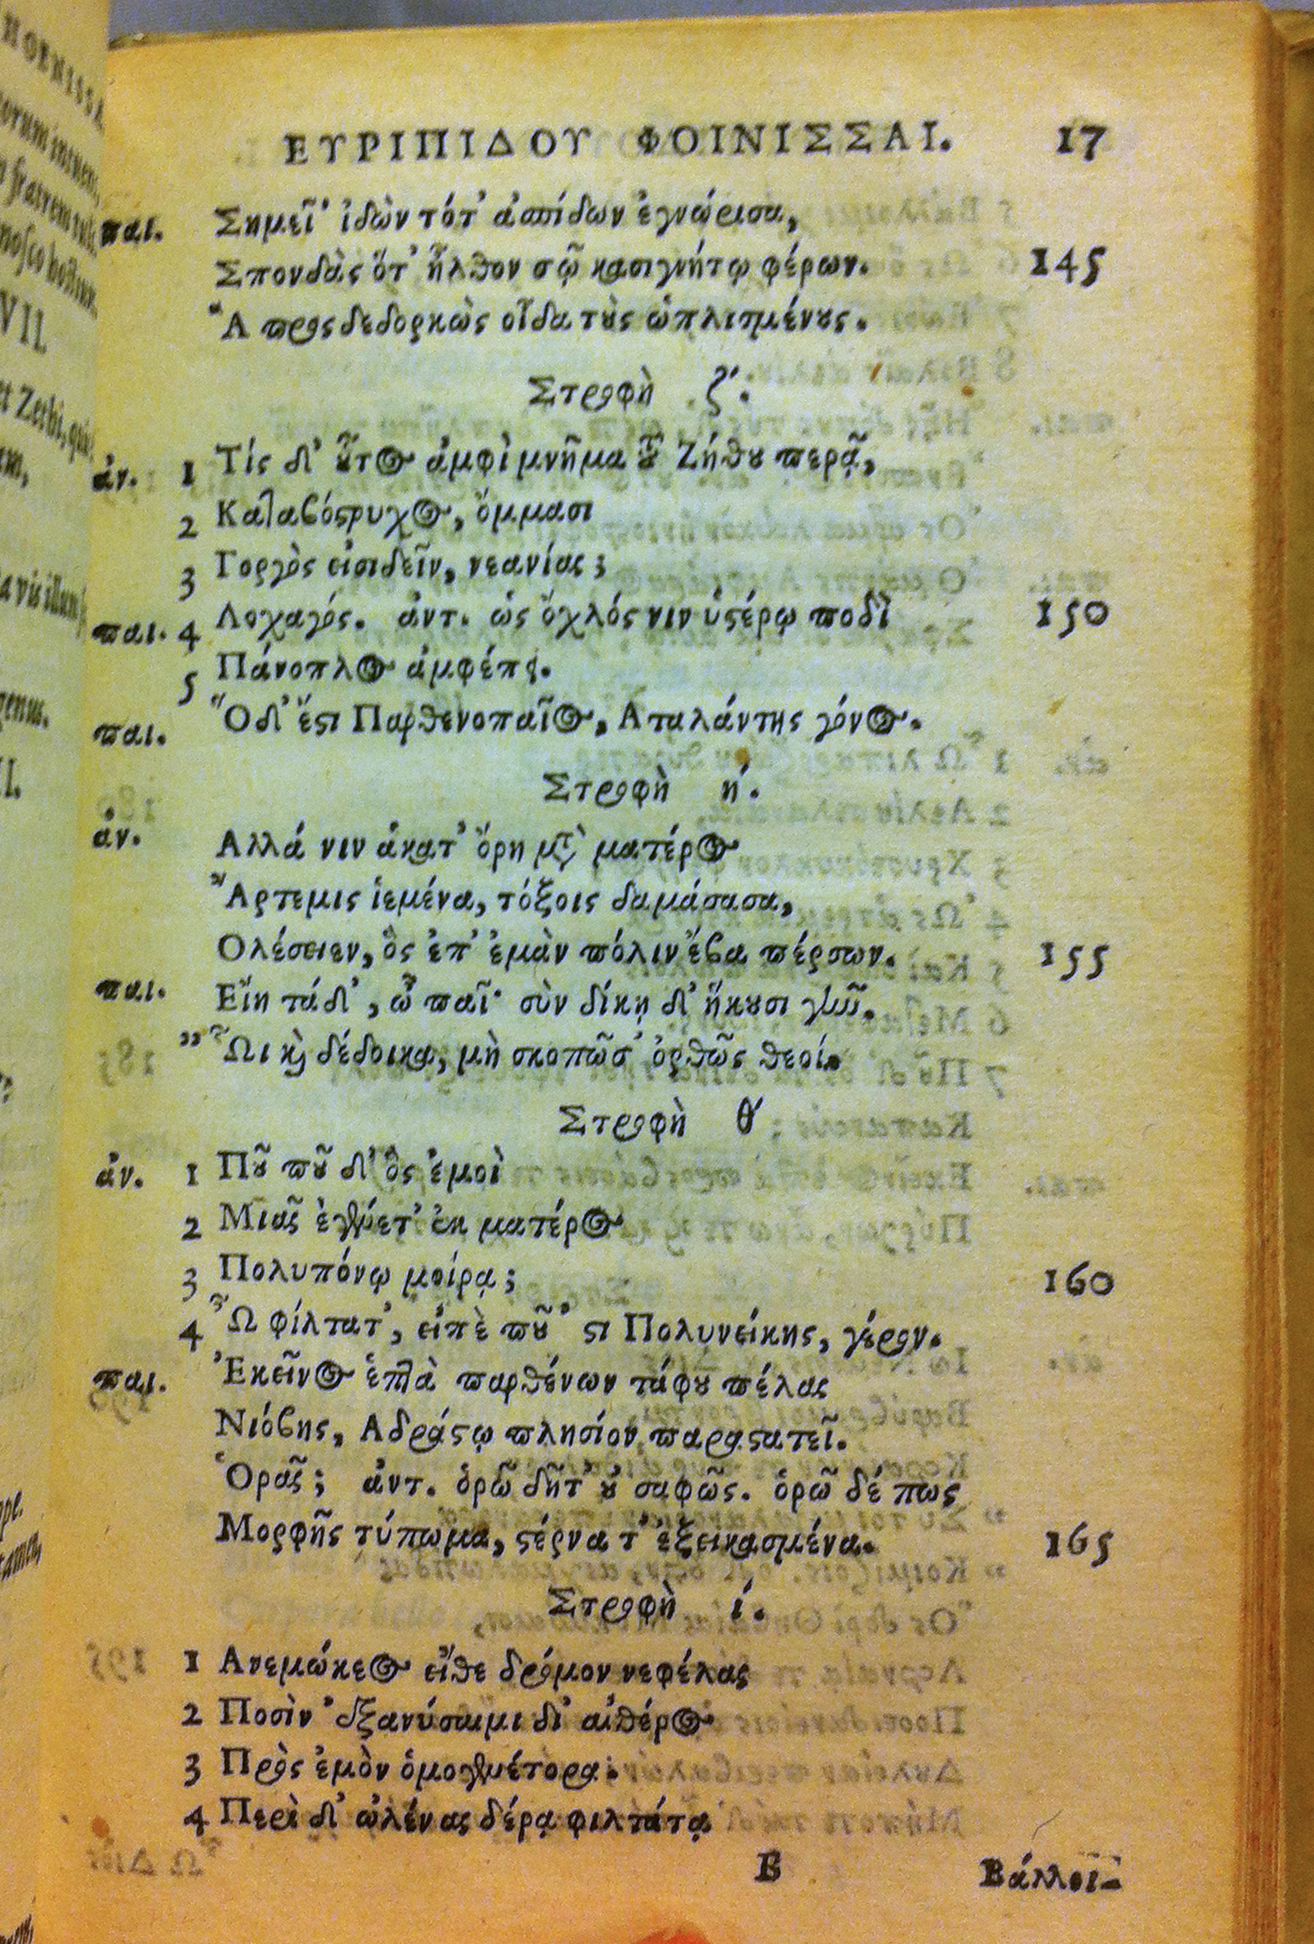 ΕΥΡΙΠΙΔΟΥ ΦΟΙΝΙΣΣΑΙ. 17
παι. Σημεῖ' ἰδὼν τότ' ἀσπίδων ἐγνώρισα,
Σπονδὰς ὅτ' ἦλθον σῷ κασιγνήτῳ φέρων. 145
Ἃ προςδεδορκὼς οἶδα τοὺς ὡπλισμένους.
Στροφὴ ζʹ.
ἀν. 1 Τίς δ' οὗτος ἀμφὶ μνῆμα τοῦ Ζήθου περᾷ,
2 Καταβόστρυχος, ὄμμασι
3 Γοργὸς εἰσιδεῖν, νεανίας;
παι. 4 Λοχαγός. ἀντ. ὡς ὄχλός νιν ὑστέρῳ ποδὶ 150
5 Πάνοπλος ἀμφέπει.
παι. Ὅδ' ἔστι Παρθενοπαῖος, Αταλάντης γόνος.
Στροφὴ ηʹ.
ἀν. Αλλά νιν ἁ κατ' ὄρη μετὰ ματέρος
Ἄρτεμις ἱεμένα, τόξοις δαμάσασα,
Ολέσειεν, ὃς ἐπ' ἐμὰν πόλιν ἔβα πέρσων. 155
παι. Εἴη τάδ', ὦ παῖ· σὺν δίκῃ δ' ἥκουσι γῆν.
" Ὧι καὶ δέδοικα, μὴ σκοπῶσ' ὀρθῶς θεοί.
Στροφὴ θʹ
ἀν. 1 Ποῦ ποῦ δ' ὃς ἐμοὶ
2 Μιᾶς ἐγένετ' ἐκ ματέρος
3 Πολυπόνῳ μοίρᾳ; 160
4 Ὦ φίλτατ', εἰπὲ ποῦ 'στι Πολυνείκης, γέρον.
παι. Ἐκεῖνος ἑπτὰ παρθένων τάφου πέλας
Νιόβης, Αδράστῳ πλησίον παραστατεῖ.
Ὁρᾷς; ἀντ. ὁρῶ δῆτ' οὐ σαφῶς. ὁρῶ δέ πως
Μορφῆς τύπωμα, στέρνα τ' ἐξεικασμένα. 165
Στροφὴ ί.
1 Ανεμώκεος εἴθε δρόμον νεφέλας
2 Ποσὶν ἐξανύσαιμι δι' αἰθέρος
3 Πρὸς ἐμὸν ὁμογενέτορα·
4 Περὶ δ' ὠλένας δέρᾳ φιλτάτᾳ
B Βάλλοι-